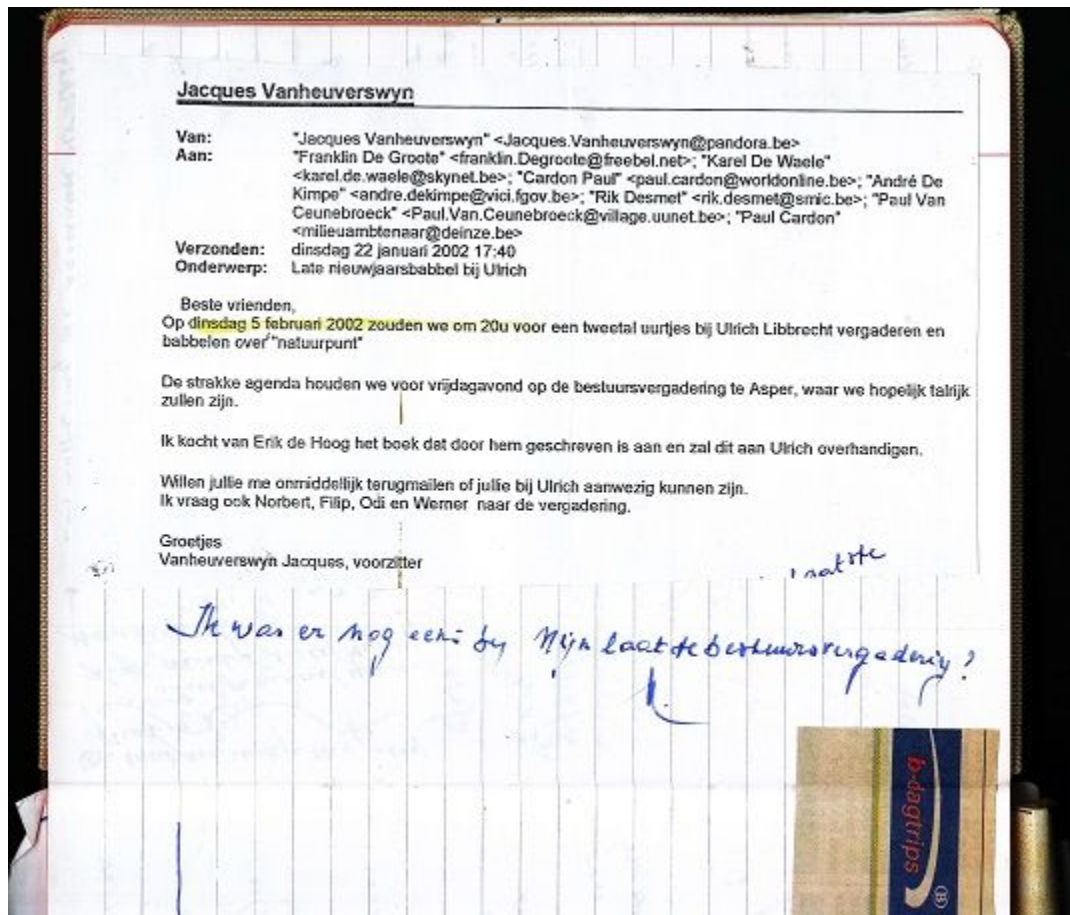 Jacques Vanheuverswyn
Van: "Jacques Vanheuverswyn" <Jacques.Vanheuverswyn@pandora.be>
Aan: "Franklin De Groote" <franklin.Degroote@freebel.net>; "Karel De Waele"
<karel.de.waele@skynet.be>; "Cardon Paul" <paul.cardon@worldonline.be>; "André De
Kimpe" <andre.dekimpe@vici.fgov.be>; "Rik Desmet" <rik.desmet@smic.be>; "Paul Van
Ceunebroeck" <Paul.Van.Ceunebroeck@village.uunet.be>; "Paul Cardon"
<milieuambtenaar@deinze.be>
Verzonden: dinsdag 22 januari 2002 17:40
Onderwerp: Late nieuwjaarsbabbel bij Ulrich
Beste vrienden,
Op dinsdag 5 februari 2002 zouden we om 20u voor een tweetal uurtjes bij Ulrich Libbrecht vergaderen en
babbelen over "natuurpunt"
De strakke agenda houden we voor vrijdagavond op de bestuursvergadering te Asper, waar we hopelijk talrijk
zullen zijn.
Ik kocht van Erik de Hoog het boek dat door hem geschreven is aan en zal dit aan Ulrich overhandigen.
Willen jullie me onmiddellijk terugmailen of jullie bij Ulrich aanwezig kunnen zijn.
Ik vraag ook Norbert, Filip, Odi en Werner naar de vergadering.
Groetjes
Vanheuverswyn Jacques, voorzitter
Ik was er nog eens bij Mijn laatste bestuursvergadering?
b-dagtrips
B